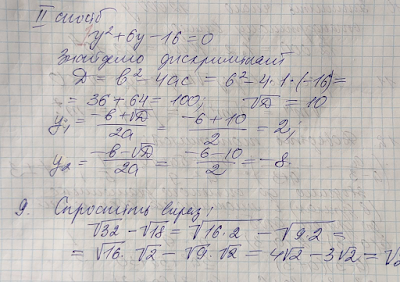 II спосіб
y² + 6y - 16 = 0
Знайдемо дискримінант
D = b² - 4ac = 6² - 4·1·(-16) =
= 36 + 64 = 100, √D = 10
y₁ = (-b + √D)/2a = (-6 + 10)/2 = 2,
y₂ = (-b - √D)/2a = (-6 - 10)/2 = -8.
9. Спростить вираз:
√32 - √18 = √16·2 - √9·2 =
= √16 · √2 - √9 · √2 = 4√2 - 3√2 = √2